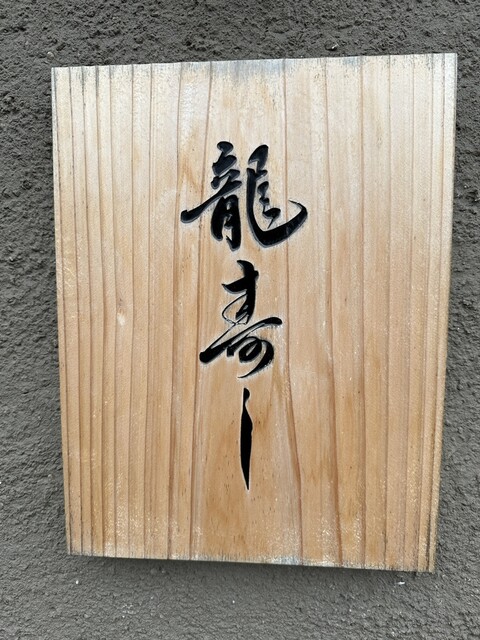 龍寿し